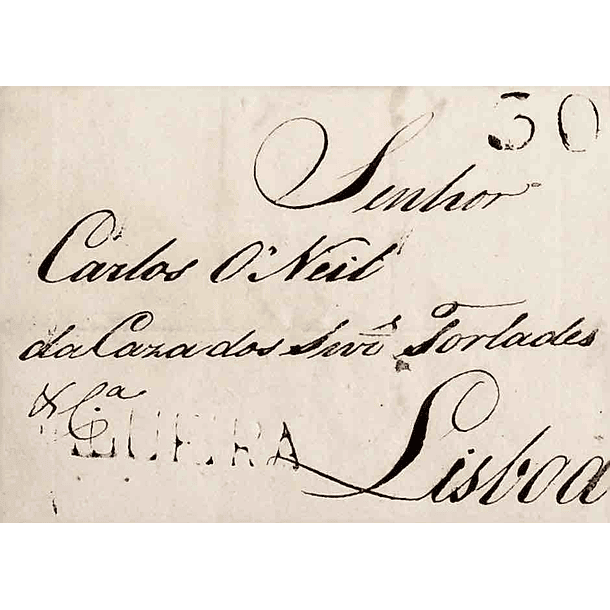 30
Senhor
Carlos O'Neil
da Caza dos Snrs Torlades
& Cª
Lisboa